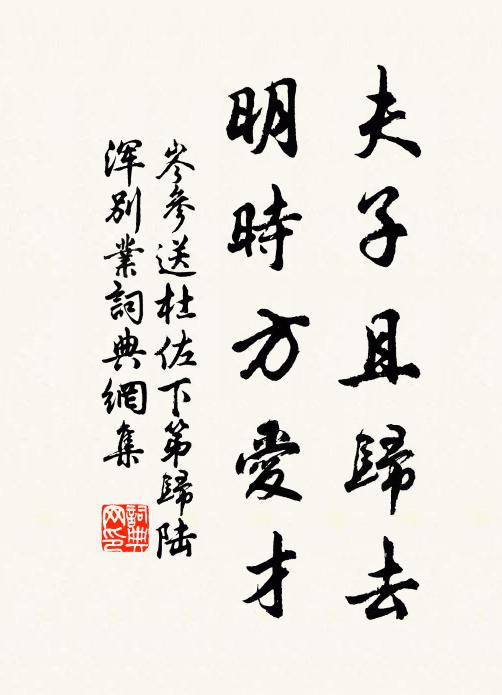 夫子且歸去
明時方愛才
岑參送杜佐下第歸陸
渾別業詞典網集
詞典网印